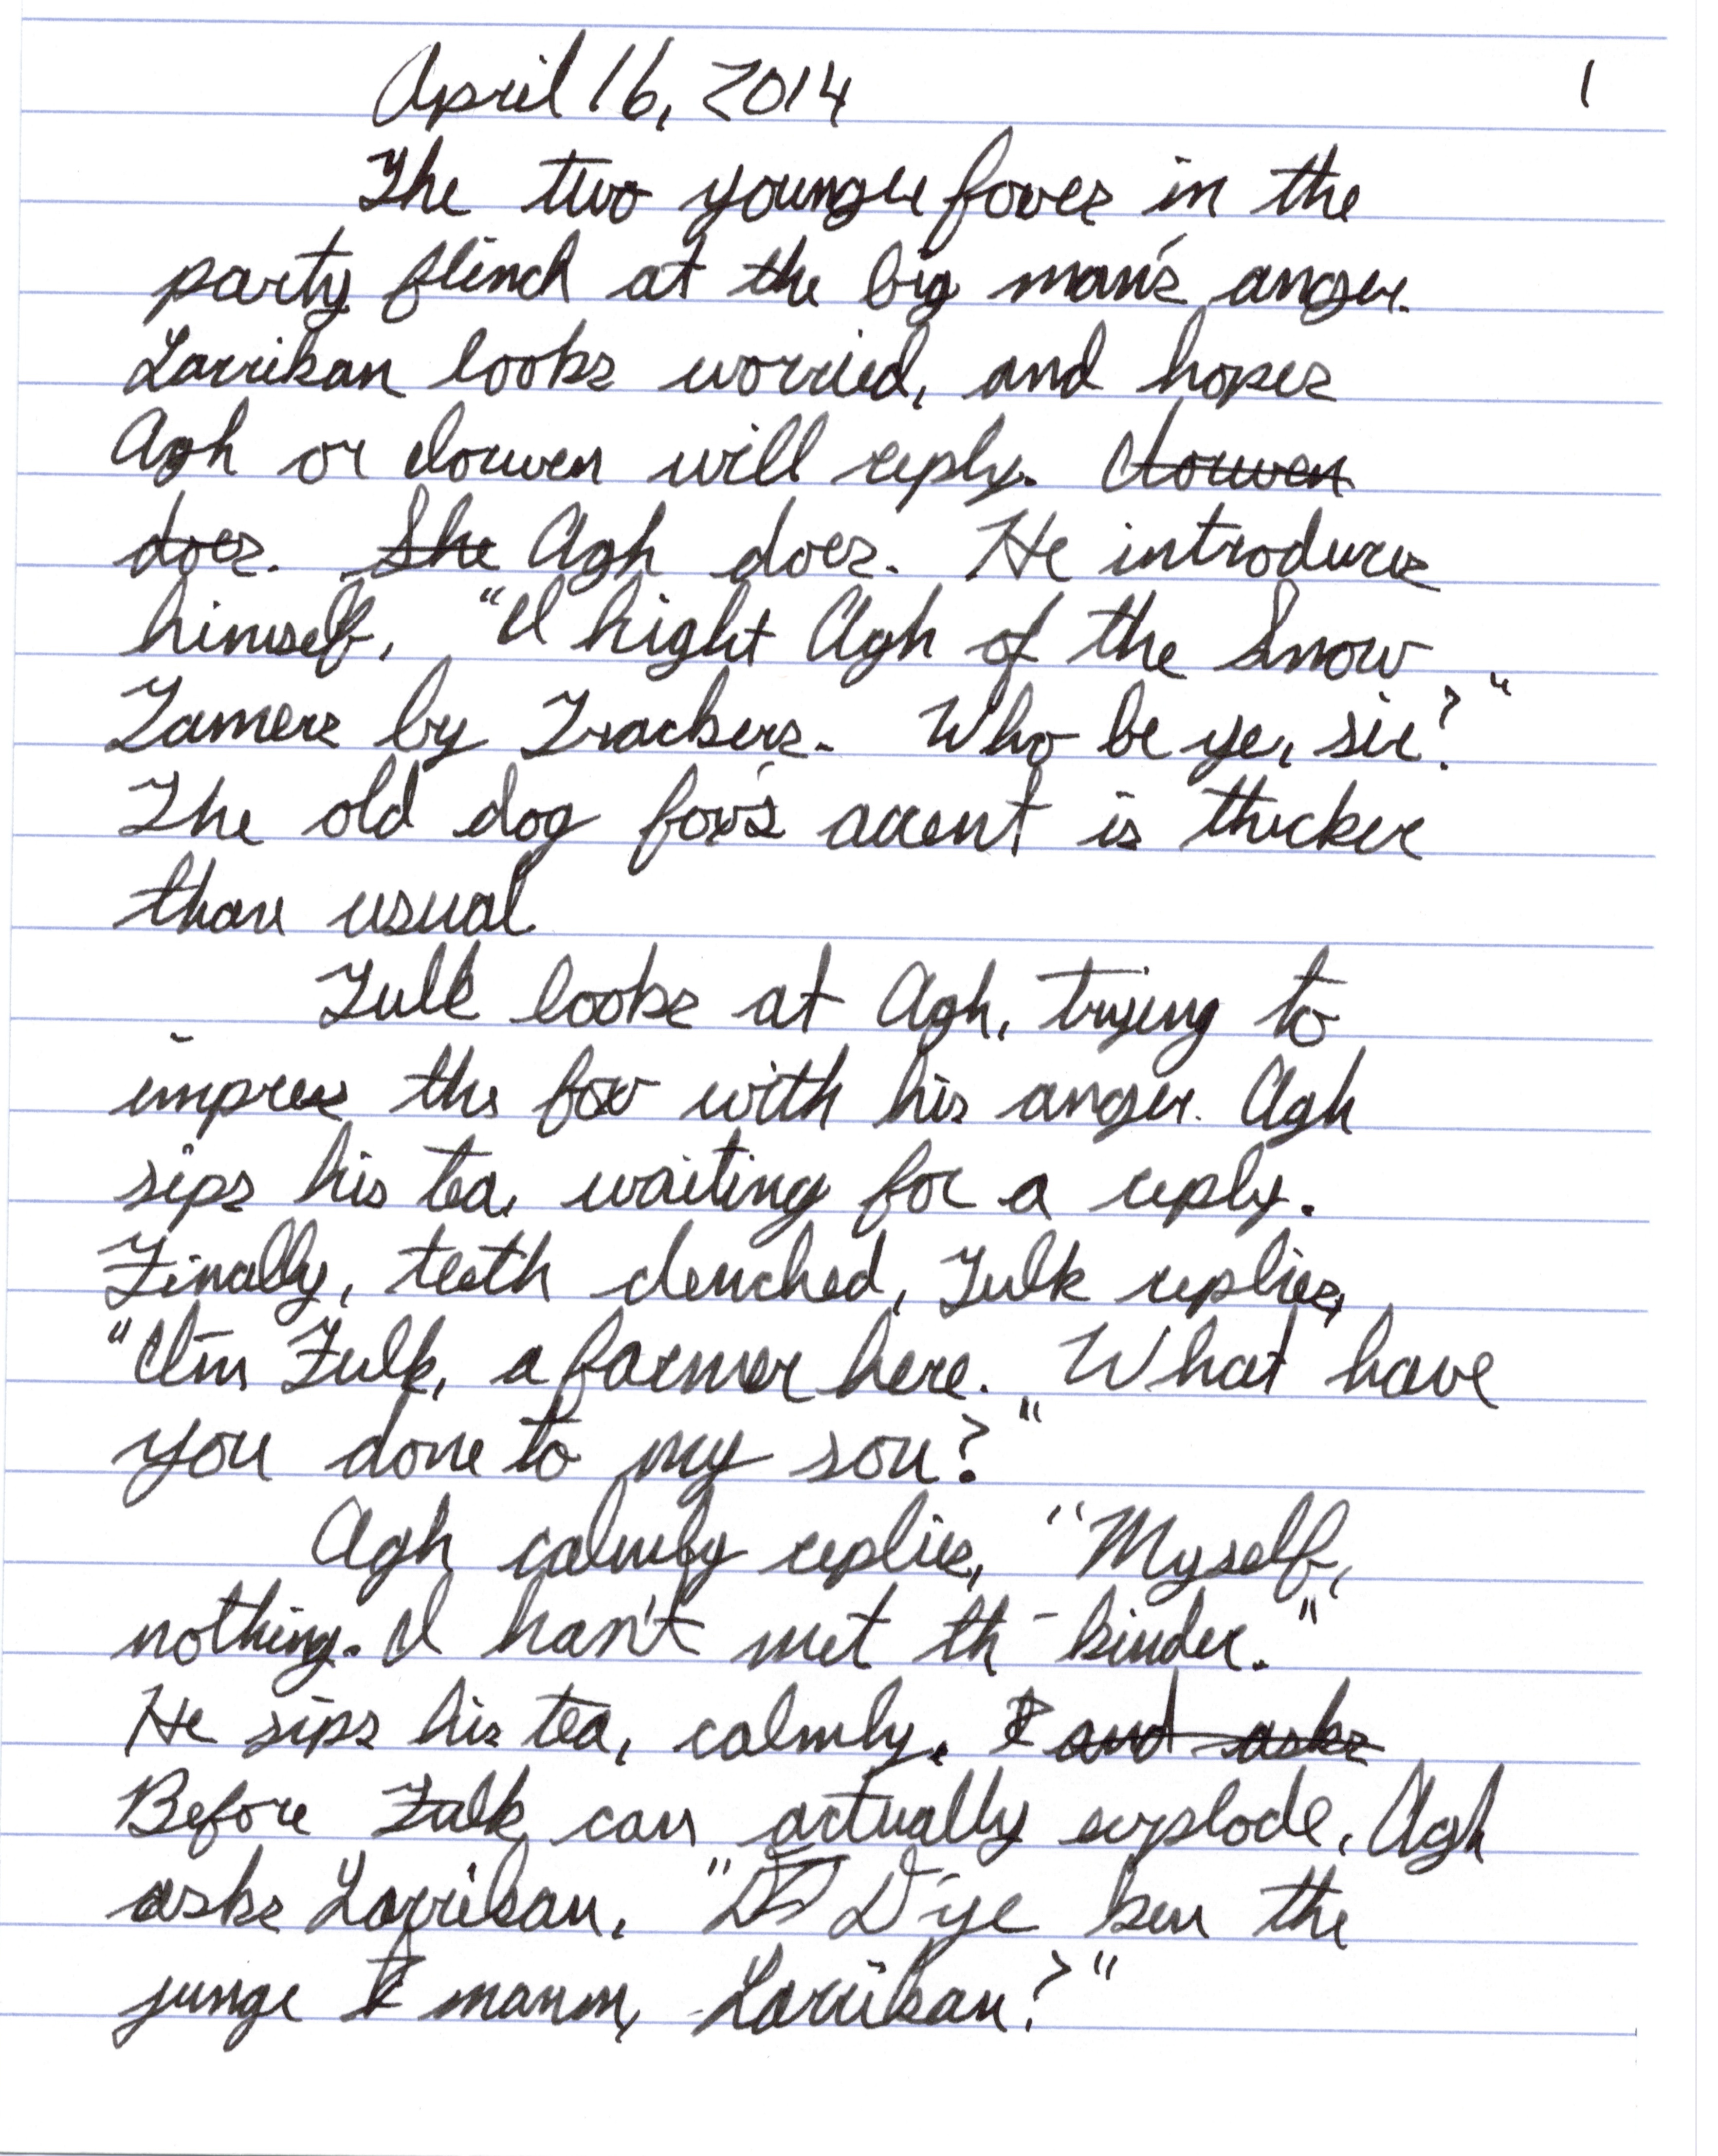 April 16, 2014 1
The two younger foxes in the
party flinch at the big man's anger.
Larrikan looks worried, and hopes
Agh or Iouwen will reply. Iouwen
does. She Agh does. He introduces
himself, "I hight Agh of the Snow
Tamers by Trackers. Who be ye, sir?"
The old dog fox's accent is thicker
than usual.
Fulk looks at Agh, trying to
impress the fox with his anger. Agh
sips his tea, waiting for a reply.
Finally, teeth clenched, Fulk replies,
"I'm Fulk, a farmer here. What have
you done to my son?"
Agh calmly replies, "Myself,
nothing. I han't met th - kinder."
He sips his tea, calmly. and asks
Before Fulk can actually explode, Agh
asks Larrikan, "D'ye ken the
junge mann, Larrikan?"